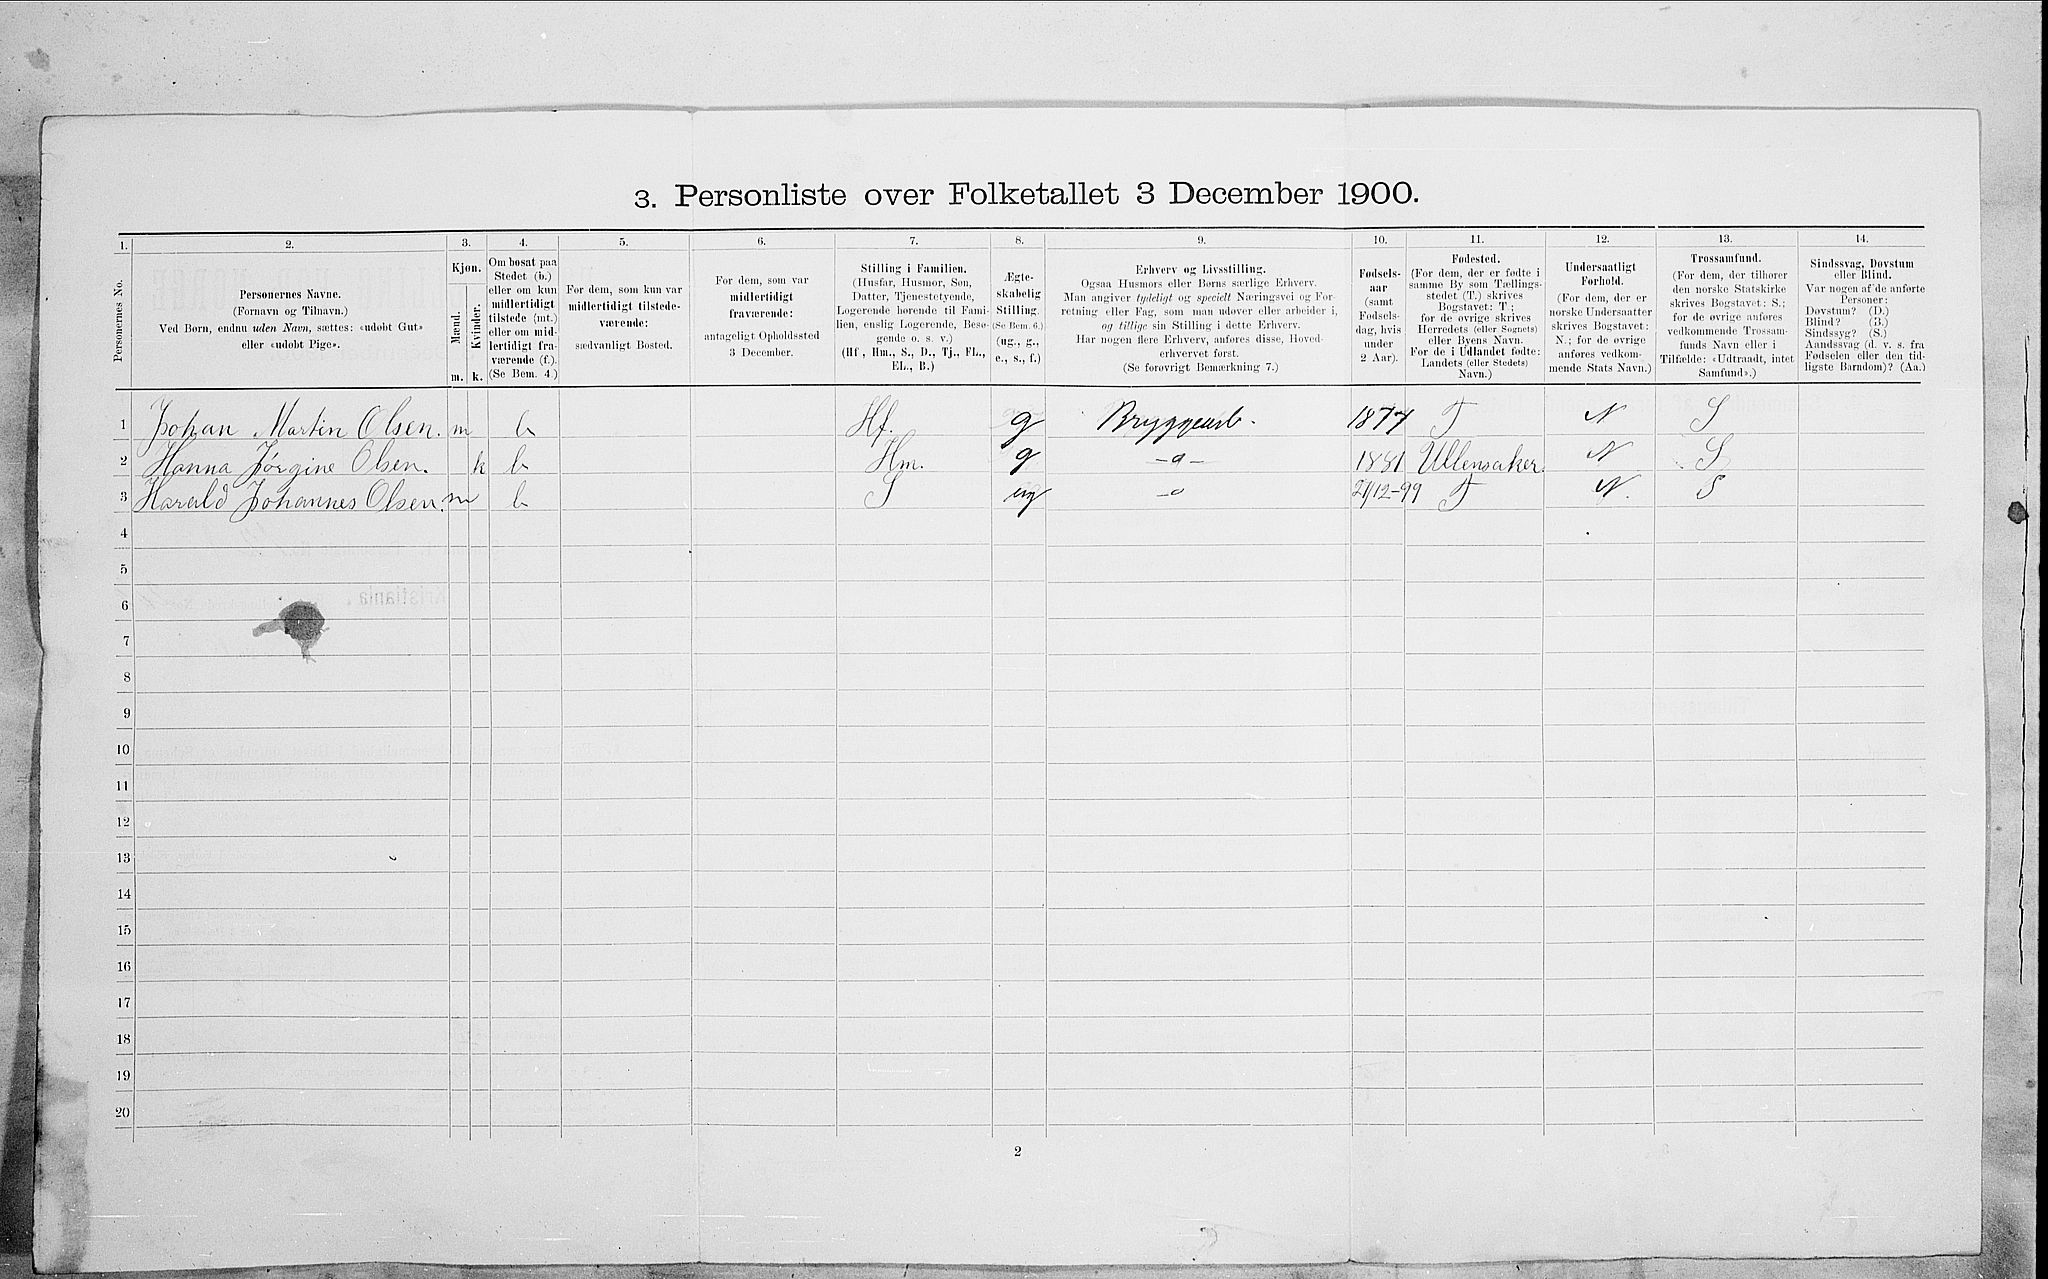 3. Personliste over Folketallet 3 December 1900.
1. 2. 3. 4. 5. 6. 7. 8. 9. 10. 11. 12. 13. 14.
Personernes No.
Personernes Navne.
(Fornavn og Tilnavn.)
Ved Børn, endnu uden Navn, sættes: «udøbt Gut»
eller «udøbt Pige».
Kjøn.
Mænd.
Kvinder.
m. k.
Om bosat paa
Stedet (b.)
eller om kun
midlertidigt
tilstede (mt.)
eller om mid-
lertidigt fra-
værende (f.).
(Se Bem. 4.)
For dem, som kun var
midlertidigt tilstede-
værende:
sædvanligt Bosted.
For dem, som var
midlertidigt
fraværende:
antageligt Opholdssted
3 December.
Stilling i Familien.
(Husfar, Husmor, Søn,
Datter, Tjenestetyende,
Logerende hørende til Fami-
lien, enslig Logerende, Besø-
gende o. s. v.)
(Hf, Hm., S., D., Tj., FL.,
EL., B.)
Ægte-
skabelig
Stilling.
(Se Bem. 6.)
(ug., g.,
e., s., f.)
Erhverv og Livsstilling.
Ogsaa Husmors eller Børns særlige Erhverv.
Man angiver tydeligt og specielt Næringsvei og For-
retning eller Fag, som man udøver eller arbeider i,
og tillige sin Stilling i dette Erhverv.
Har nogen flere Erhverv, anføres disse, Hoved-
erhvervet først.
(Se forøvrigt Bemærkning 7.)
Fødsels-
aar
(samt
Fødsels-
dag, hvis
under
2 Aar).
Fødested.
(For dem, der er fødte i
samme By som Tællings-
stedet (T.) skrives
Bogstavet: T;
for de øvrige skrives
Herredets (eller Sognets)
eller Byens Navn.
For de i Udlandet fødte:
Landets (eller Stedets)
Navn.)
Undersaatligt
Forhold.
(For dem, der er
norske Undersaatter
skrives Bogstavet:
N.; for de øvrige
anføres vedkom-
mende Stats Navn.)
Trossamfund.
(For dem, der tilhører
den norske Statskirke
skrives Bogstavet: S.;
for de øvrige anføres
vedkommende Trossam-
funds Navn eller i
Tilfælde: «Udtraadt, intet
Samfund».)
Sindssvag, Døvstum
eller Blind.
Var nogen af de anførte
Personer:
Døvstum? (D.)
Blind? (B.)
Sindssyg? (S.)
Aandssvag (d. v. s. fra
Fødselen eller den tid-
ligste Barndom)? (Aa.)
1 Johan Martin Olsen. m b Hf. g Bryggearb. 1877 T N S
2 Hanna Jørgine Olsen. k b Hm. g -o- 1881 Ullensaker. N S
3 Harald Johannes Olsen. m b S ug -o 21/12-99 T N. S
4
5
6
7
8
9
10
11
12
13
14
15
16
17
18
19
20
2